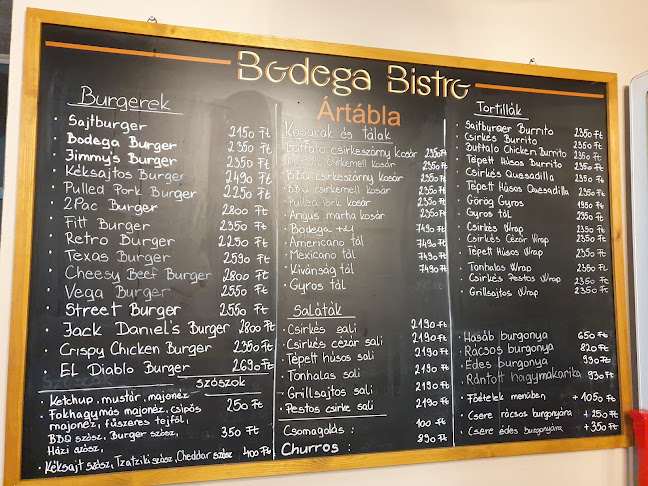 Bodega Bistro
Ártábla
Burgerek
· Sajtburger 2150 Ft
· Bodega Burger 2350 Ft
· Jimmy's Burger 2350 Ft
· Kéksajtos Burger 2490 Ft
· Pulled Pork Burger 2250 Ft
· 2Pac Burger 2800 Ft
· Fitt Burger 2350 Ft
· Retro Burger 2250 Ft
· Texas Burger 2590 Ft
· Cheesy Beef Burger 2800 Ft
· Vega Burger 2550 Ft
· Street Burger 2550 Ft
· Jack Daniel's Burger 2800 Ft
· Crispy Chicken Burger 2350 Ft
· EL Diablo Burger 2690 Ft
szószok
· Ketchup, mustár, majonéz
· Fokhagymás majonéz, csípős 250 Ft
majonéz, fűszeres tejföl,
BBQ szósz, Burger szósz, 350 Ft
Házi szósz,
· Kéksajt szósz, Tzatziki szósz, Cheddar szósz 400 Ft
Kosarak és tálak
· Buffalo csirkeszárny kosár 2350 Ft
· Buffalo csirkemell kosár 2350 Ft
· BBQ csirkeszárny kosár 2350 Ft
· BBQ csirkemell kosár 2350 Ft
· Pulled Pork kosár 2350 Ft
· Angus marha kosár
· Bodega tál 7490 Ft
· Americano tál 7490 Ft
· Mexicano tál 7490 Ft
· Kívánság tál 7490 Ft
· Gyros tál
Saláták
· Csirkés sali 2190 Ft
· Csirkés cézár sali 2190 Ft
· Tépett húsos sali 2190 Ft
· Tonhalas sali 2190 Ft
· Grillsajtos sali 2190 Ft
· Pestos csirke sali 2190 Ft
Csomagolás : 100 Ft
Churros : 890 Ft
Tortillák
· Sajtburger Burrito 2350 Ft
· Csirkés Burrito 2350 Ft
· Buffalo Chicken Burrito 2350 Ft
· Tépett Húsos Burrito 2350 Ft
· Csirkés Quesadilla 2350 Ft
· Tépett Húsos Quesadilla 2350 Ft
· Görög Gyros 1950 Ft
· Gyros tál
· Csirkés Wrap 2350 Ft
· Csirkés Cézár Wrap 2350 Ft
· Tépett Húsos Wrap 2350 Ft
· Tonhalas Wrap 2350 Ft
· Csirkés Pestos Wrap 2350 Ft
· Grillsajtos Wrap 2350 Ft
· Hasáb burgonya 650 Ft
· Rácsos burgonya 820 Ft
· Édes burgonya 990 Ft
· Rántott hagymakarika 990 Ft
· Főételek menüben + 1050 Ft
· Csere rácsos burgonyára + 250 Ft
· Csere édes burgonyára + 350 Ft